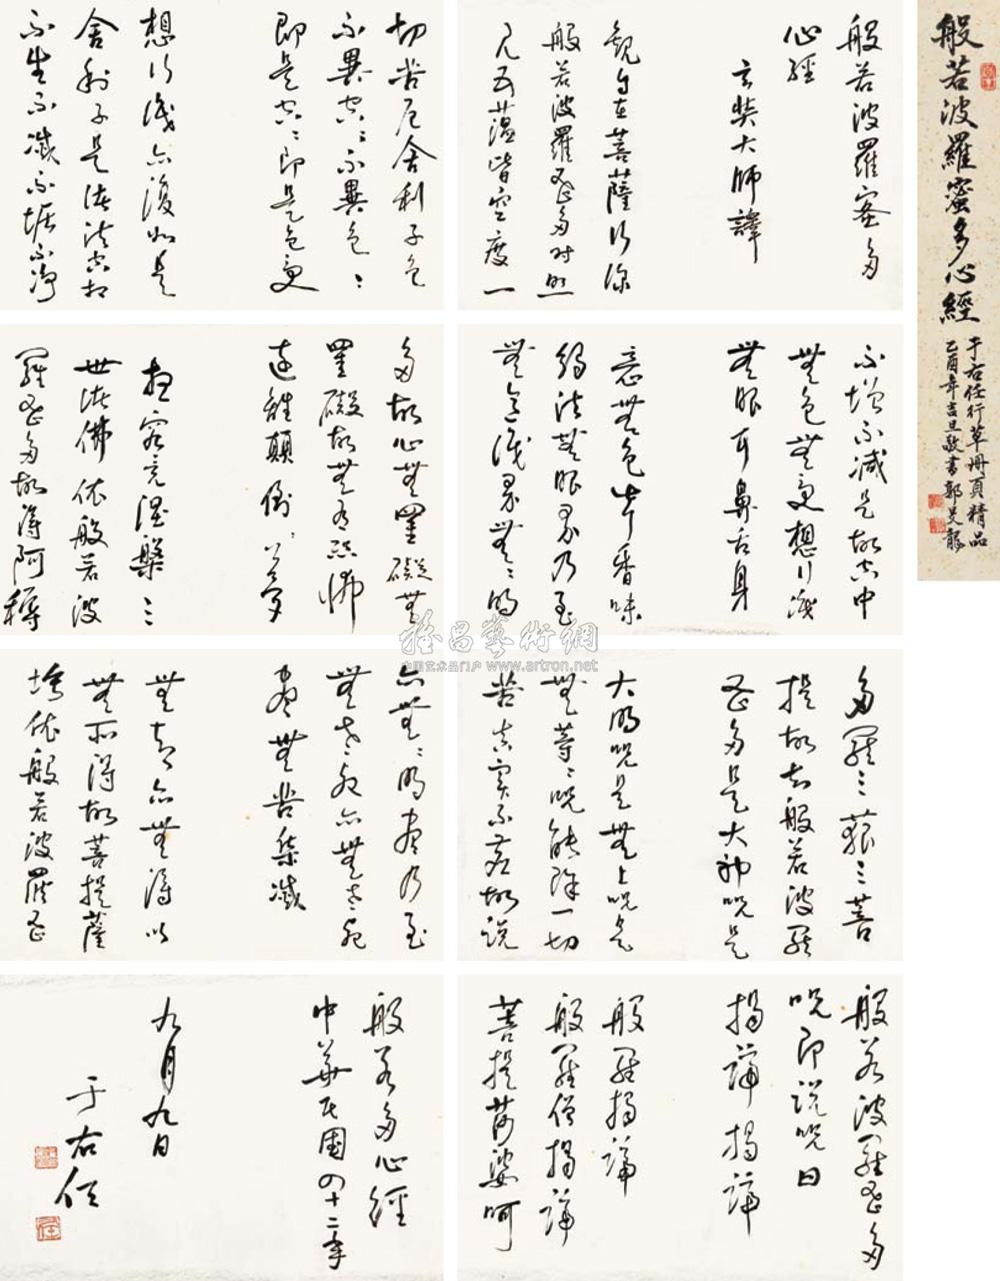 般若波羅蜜多心經
于右任行草册頁精品
乙酉年吉旦敬書郭
般若波羅密多
心經
玄奘大師譯
觀自在菩薩行深
般若波羅蜜多时照
見五蕴皆空度一
切苦厄舍利子色
不異空〻不異色〻
即是空〻即是色受
想行識亦復如是
舍利子是諸法空相
不生不滅不垢不净
不增不减是故空中
無色無受想行識
無眼耳鼻舌身
意無色声香味
觸法無眼界乃至
無意識界無〻明
亦無〻明盡乃至
無老死亦無老死
盡無苦集滅
無智亦無得以
無所得故菩提薩
埵依般若波羅蜜
多故心無罣礙無
罣礙故無有恐怖
遠離顛倒夢
想究竟涅槃三
世諸佛依般若波
羅蜜多故得阿耨
多羅三藐三菩
提故知般若波羅
蜜多是大神咒是
大明咒是無上咒是
無等〻咒能除一切
苦真实不虚故説
般若波羅蜜多
咒即說咒曰
揭諦揭諦
般羅揭諦
般羅僧揭諦
菩提莎婆呵
般若多心經
中華民國四十二年
九月九日
于右任
雅昌藝術網
中国艺术品门户 www.artron.net